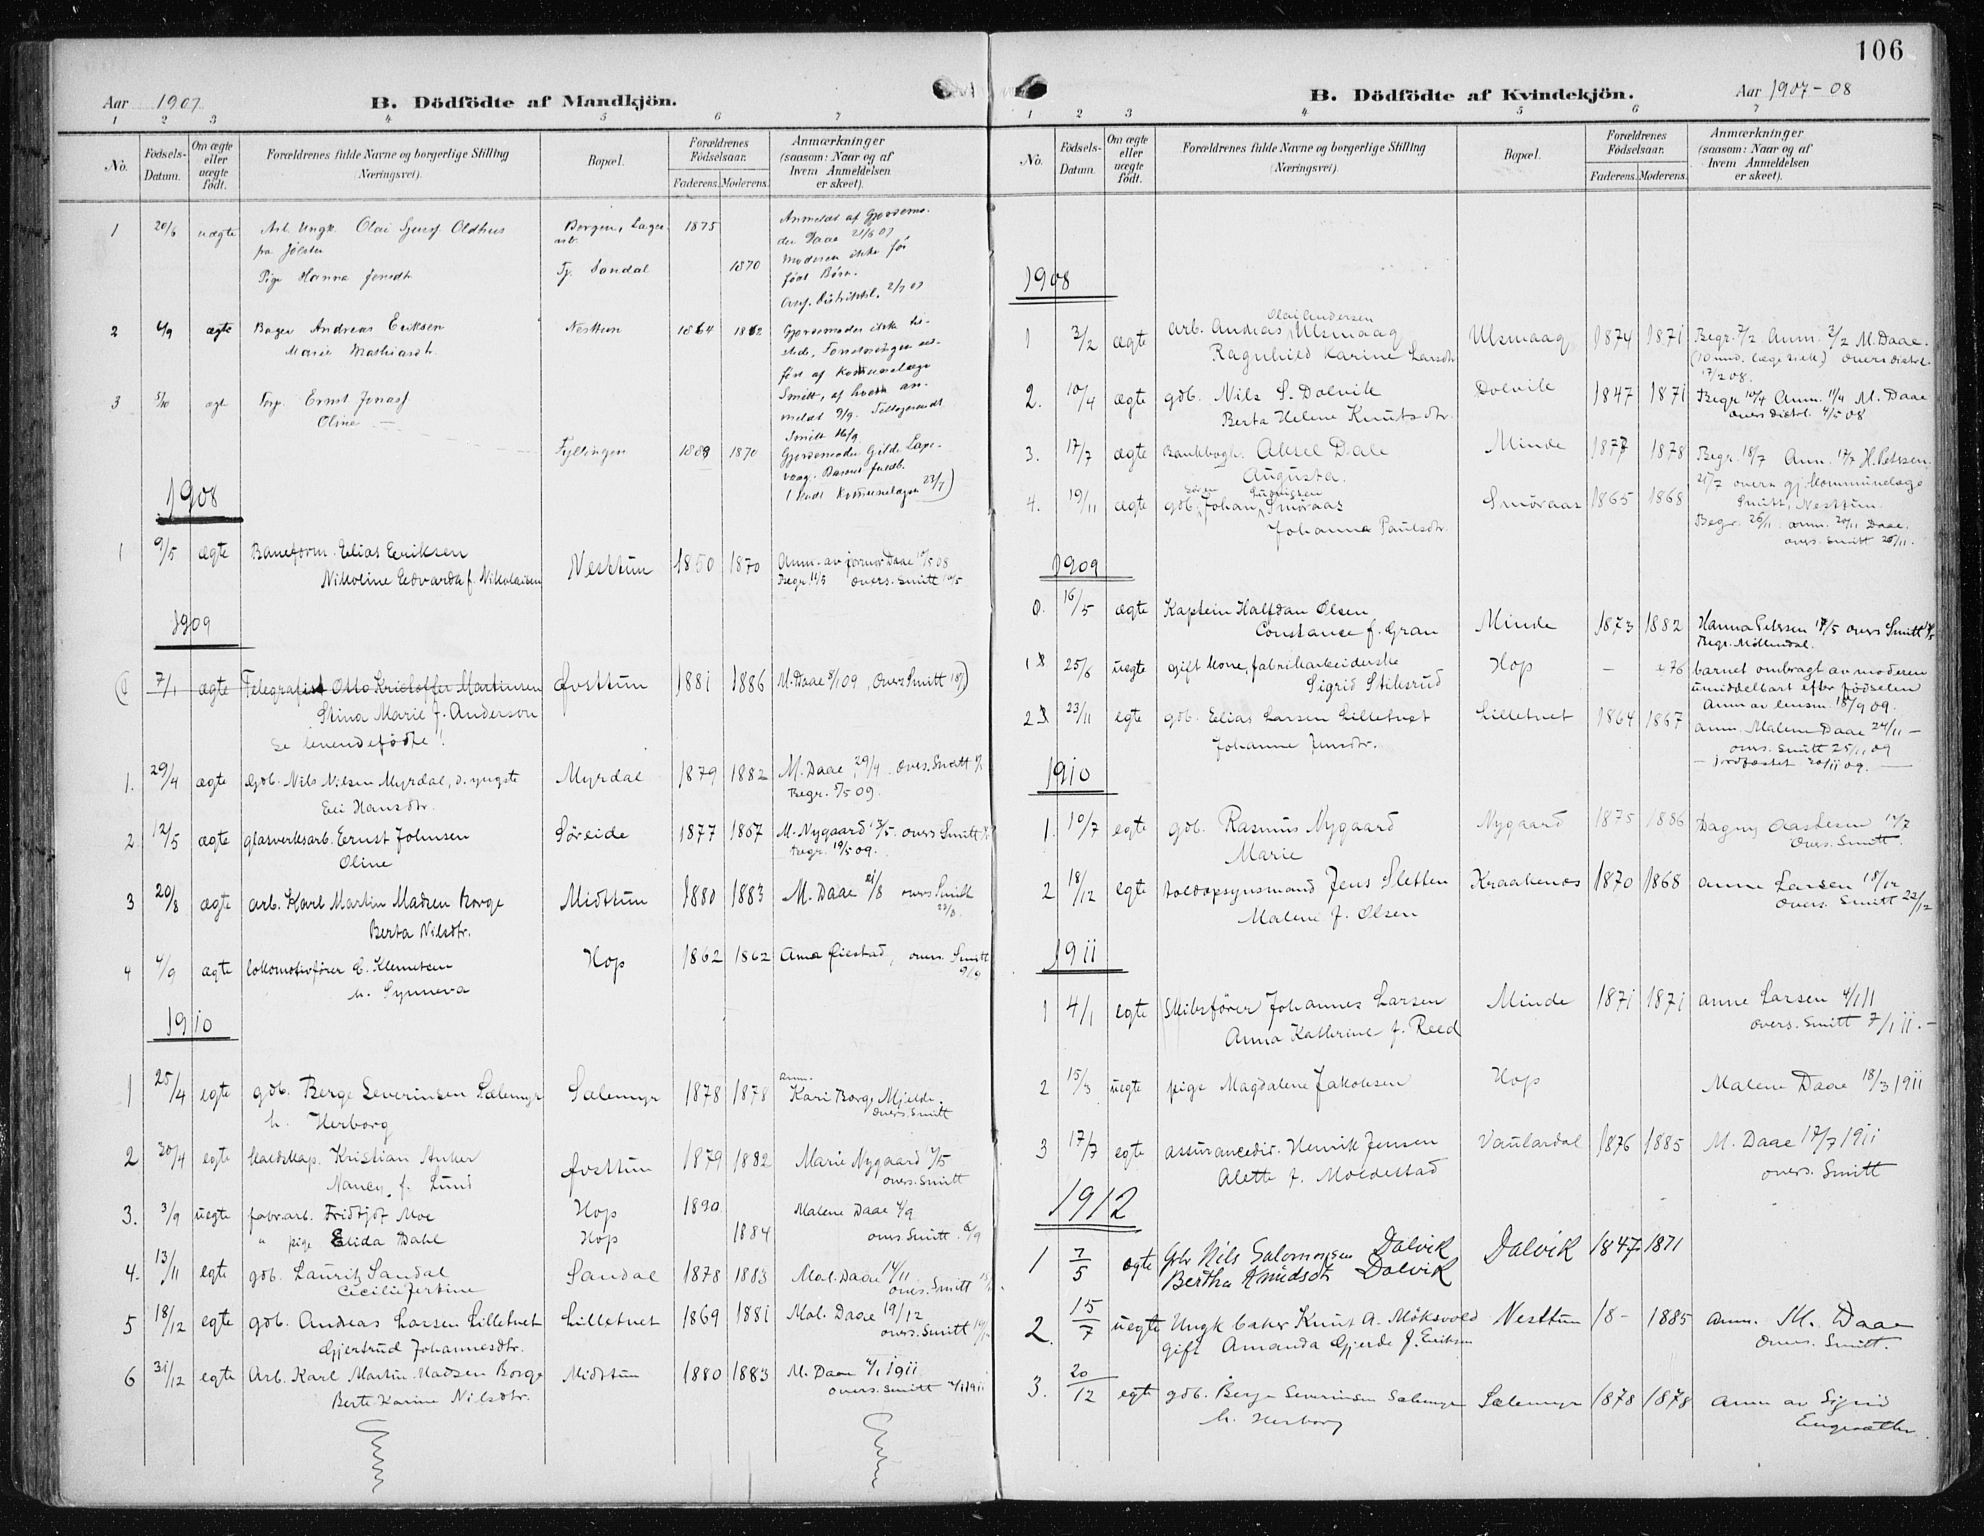 106
Aar 1907.
B. Dödfödte af Mandkjön.
1 2 3 4 5 6 7
No.
Födsels-Datum.
Om ægte eller uægte födt.
Forældrenes fulde Navne og borgerlige Stilling (Næringsvei).
Bopæl.
Forældrenes Födselsaar.
Faderens. Moderens.
Anmærkninger (saasom: Naar og af hvem Anmeldelsen er skeet).
1 20/6 uægte Arb. Ungk. Olai Oldhus Bergen, 1875 Anmeldt af Gjordemo-
fra Jölster der Daae 21/6 07
Pige Hanna Sandal 1870 Moderen ikke før
født Børn.
2 4/9 ægte Bager Andreas Eriksen Nesttun 1864 1862 Gjordemoder ikke
Marie Mathiasdtr.
af Kommunelæge
3 5/10 ægt Ernst Smitt, af hvem an-
Oline meldt 9/9.
Smitt 16/9
Fyllingen 1889 1870 Gjordemoder Gilde
1908
1 9/5 ægte Baneform. Elias Eriksen Nesttun 1850 1870 Anm. av jormor Daae 10/5 08
Nikoline Edvarda f. Nikolaisen Begr. 11/5 overs. Smitt 10/5
1909
7/1 ægte Telegrafist Otto Kristoffer Martinsen Øvsttun 1881 1886 M. Daae 8/1 09, Overs Smitt
Stina Marie f. Anderson
Se levendefødte!
1. 29/4 ægte Gdb. Nils Nilsen Myrdal, d. yngste Myrdal 1879 1882 M. Daae 29/4. overs. Smitt
Eli Hansdtr. Begr. 5/5 09.
2. 12/5 ægte glasverksarb. Ernst Johnsen Søreide 1877 1867 M. Nygaard 13/5. overs Smitt
Oline Begr. 19/5 09.
3 20/8 ægte arb. Karl Martin Madsen Borge Midttun 1880 1883 M. Daae 21/8 overs Smitt
Berta Nilsdtr. 23/8.
4 4/9 ægte lokomotivfører E. Klemetsen Hop 1862 1862 Anna Øiestad, overs. Smitt
h. Synneva 9/9
1910
1 25/4 egte gdb. Berge Severinsen Sælemyr Sælemyr 1878 1878 anm. Kari Borge Mjelde.
h. Herborg overs. Smitt
2 30/4 egte Kristian Anker Øvsttun 1879 1882 Marie Nygaard 1/5
Nancy f. Lund overs. Smitt
3. 3/9 uegte fabr.arb. Fridtjof Moe Hop 1890 Malene Daae 4/9
" pige Elida Dahl Hop 1884 overs Smitt. 6/9
4. 13/11 egte gdb. Lauritz Sandal Sandal 1878 1883 Mal. Daae 14/11
Cecilie Jertine overs. Smitt
5 18/12 egte gdb. Andreas Larsen Lilletvet Lilletvet 1869 1881 Mal. Daae 19/12
Gjertrud Johannesdtr. overs. Smitt
6 31/12 egte Arb. Karl Martin Madsen Borge Midttun 1880 1883 M. Daae 4/1 1911
Berte Karine Nilsdtr. overs. Smitt 4/1 1911
B. Dödfödte af Kvindekjön.
Aar 1907-08
1 2 3 4 5 6 7
No.
Födsels-Datum.
Om ægte eller uægte födt.
Forældrenes fulde Navne og borgerlige Stilling (Næringsvei).
Bopæl.
Forældrenes Födselsaar.
Faderens. Moderens.
Anmærkninger (saasom: Naar og af hvem Anmeldelsen er skeet).
1908
Olai Andersen
1 3/2 ægte arb. Andreas Ulsmaag Ulsmaag 1874 1871 Begr. 7/2 Anm. 3/2 M. Daae.
Ragnhild Karine Larsdtr
17/2 08.
2. 10/4 ægte gdb. Nils S. Dolvik Dolvik 1847 1871 Begr. 10/4 Anm. 11/4 M. Daae
Berta Helene Knutsdtr. overs distrl. 4/5 08
3. 17/7 ægte Bankbogh. Aksel Dale Minde 1877 1878 Begr. 18/7 Anm. 17/7 H. Petersen
Augusta. 21/7 overs gj. kommunelæge
Søren Ludvigsen Smitt, Nesttun.
4. 19/11 ægte gdb. Johan Smøraas Smøraas 1865 1868 Begr. 26/11. anm. 20/11 Daae.
Johanna Paulsdtr. overs. Smitt 20/11.
1909
0. 16/5 ægte Kaptein Halfdan Olsen Minde 1873 1882 Hanna Petersen 17/5 overs Smitt
Constance f. Gran Begr. Møllendal.
1 25/6 uegte gift kone, fabrikarbeiderske Hop — 1876 barnet ombragt av moderen
Sigrid Stiksrud umiddelbart efter fødselen
Anm av lensm. 18/9 09.
2 23/11 egte gdb. Elias Larsen Lilletvet Lilletvet 1864 1867 anm. Malene Daae 24/11 —
Johanne Jensdtr. overs. Smitt 25/11 09
— jordfæstet 20/11 09. —
1910
1. 10/7 egte gdb. Rasmus Nygaard Nygaard 1875 1886 Dagny Aaslesen 12/7
Marie Overs. Smitt.
2 18/12 egte toldopsynsmand Jens Sletten Kraakenes 1870 1868 anne Larsen 18/12
Malene f. Olsen overs. Smitt 22/12
1911
1 4/1 egte Skibsfører Johannes Larsen Minde 1871 1871 anne Larsen 4/1 11
Anna Kathrine f. Reed overs. Smitt 7/1 11. —
2 15/3 uegte pige Magdalene Jakobsen Hop Malene Daae 18/3 1911
3 17/7 egte assurancedir. Henrik Jensen Vaulardal 1876 1885 M. Daae 17/7 1911
Alette f. Moldestad overs. Smitt
1912
1 7/5 egte Gbr Nils Salomonsen Dalvik Dalvik 1847 1871
Bertha Knudsdtr Dalvik
2. 15/7 uegte Ungk baker Knut A. Møksvold Nesttun 18- 1885 anm. M. Daae
gift Amanda Gjerde f. Eriksen overs. Smitt.
3. 20/12 egte gdb. Berge Severinsen Sælemyr Sælemyr 1878 1878 Anm av Sigrid
h. Herborg Engesæther